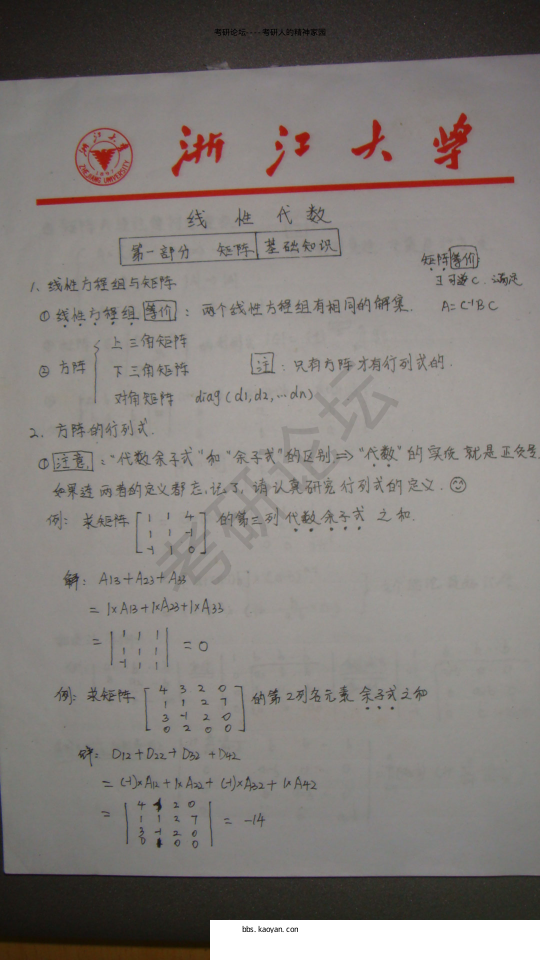 考研论坛----考研人的精神家园
浙江大学
ZHEJIANG UNIVERSITY
线性代数
第一部分 矩阵基础知识
矩阵等价
∃可逆C.满足
A=C⁻¹BC
1、线性方程组与矩阵
① 线性方程组等价:两个线性方程组有相同的解集.
② 方阵
上三角矩阵
下三角矩阵
对角矩阵 diag(d1,d2,…dn)
注:只有方阵才有行列式的.
2、方阵的行列式.
① 注意:"代数余子式"和"余子式"的区别⇒"代数"的实质就是正负号
如果连两者的定义都忘记了,请认真研究行列式的定义.
例:求矩阵
1 1 4
1 1 -1
-1 1 0
的第三列代数余子式之和.
解:A13+A23+A33
=1×A13+1×A23+1×A33
=
1 1 1
1 1 1
-1 1 1
=0
例:求矩阵
4 3 2 0
1 1 2 7
3 -1 2 0
0 2 0 0
的第2列各元素余子式之和
解:D12+D22+D32+D42
=(-1)×A12+1×A22+(-1)×A32+1×A42
=
4 2 0
1 1 2 7
3 -1 2 0
0 0 0
= -14
考研论坛
bbs.kaoyan.con